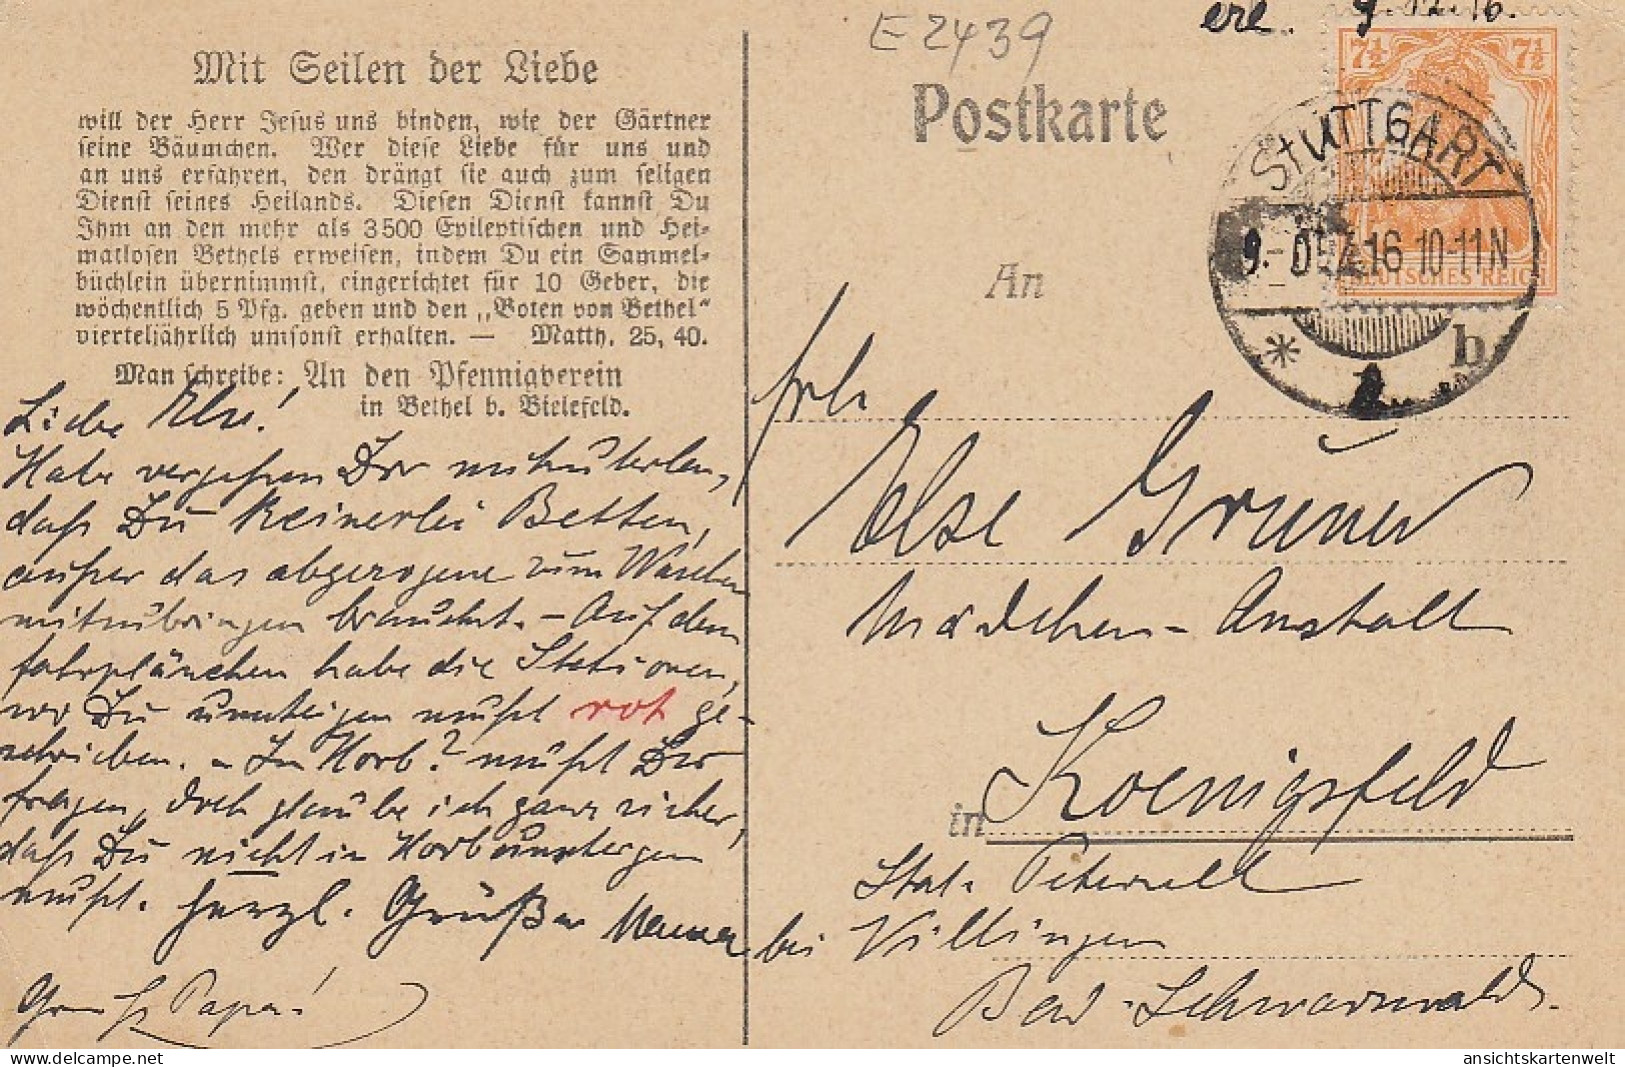 Mit Seilen der Liebe
will der Herr Jesus uns binden, wie der Gärtner
seine Bäumchen. Wer diese Liebe für uns und
an uns erfahren, den drängt sie auch zum seligen
Dienst seines Heilands. Diesen Dienst kannst Du
Ihm an den mehr als 3500 Epileptischen und Hei-
matlosen Bethels erweisen, indem Du ein Sammel-
büchlein übernimmst, eingerichtet für 10 Geber, die
wöchentlich 5 Pfg. geben und den „Boten von Bethel“
vierteljährlich umsonst erhalten. — Matth. 25, 40.
Man schreibe: An den Pfennigverein
in Bethel b. Bielefeld.
Liebe Else!
Habe vergessen Dir mitzuteilen,
daß Du keinerlei Betten,
außer das abgezogene zum Waschen
mitzubringen brauchst. – Auf dem
Fahrplänchen habe die Stationen,
wo Du umsteigen mußt rot ge-
schrieben. – In Horb? mußt Du
fragen, doch glaube ich ganz sicher,
daß Du nicht in Horb umsteigen
mußt. Herzl. Grüße Mama
Gruß Papa!
E 2439
erl. 9.12.16.
Postkarte
7½ 7½
DEUTSCHES REICH
STUTTGART
9.-DEZ.16 10-11N
* b
An
Frl.
Else Gruner
Mädchen-Anstalt
in Koenigsfeld
Stat. Peterzell
bei Villingen
Bad. Schwarzwald.
ansichtskartenwelt